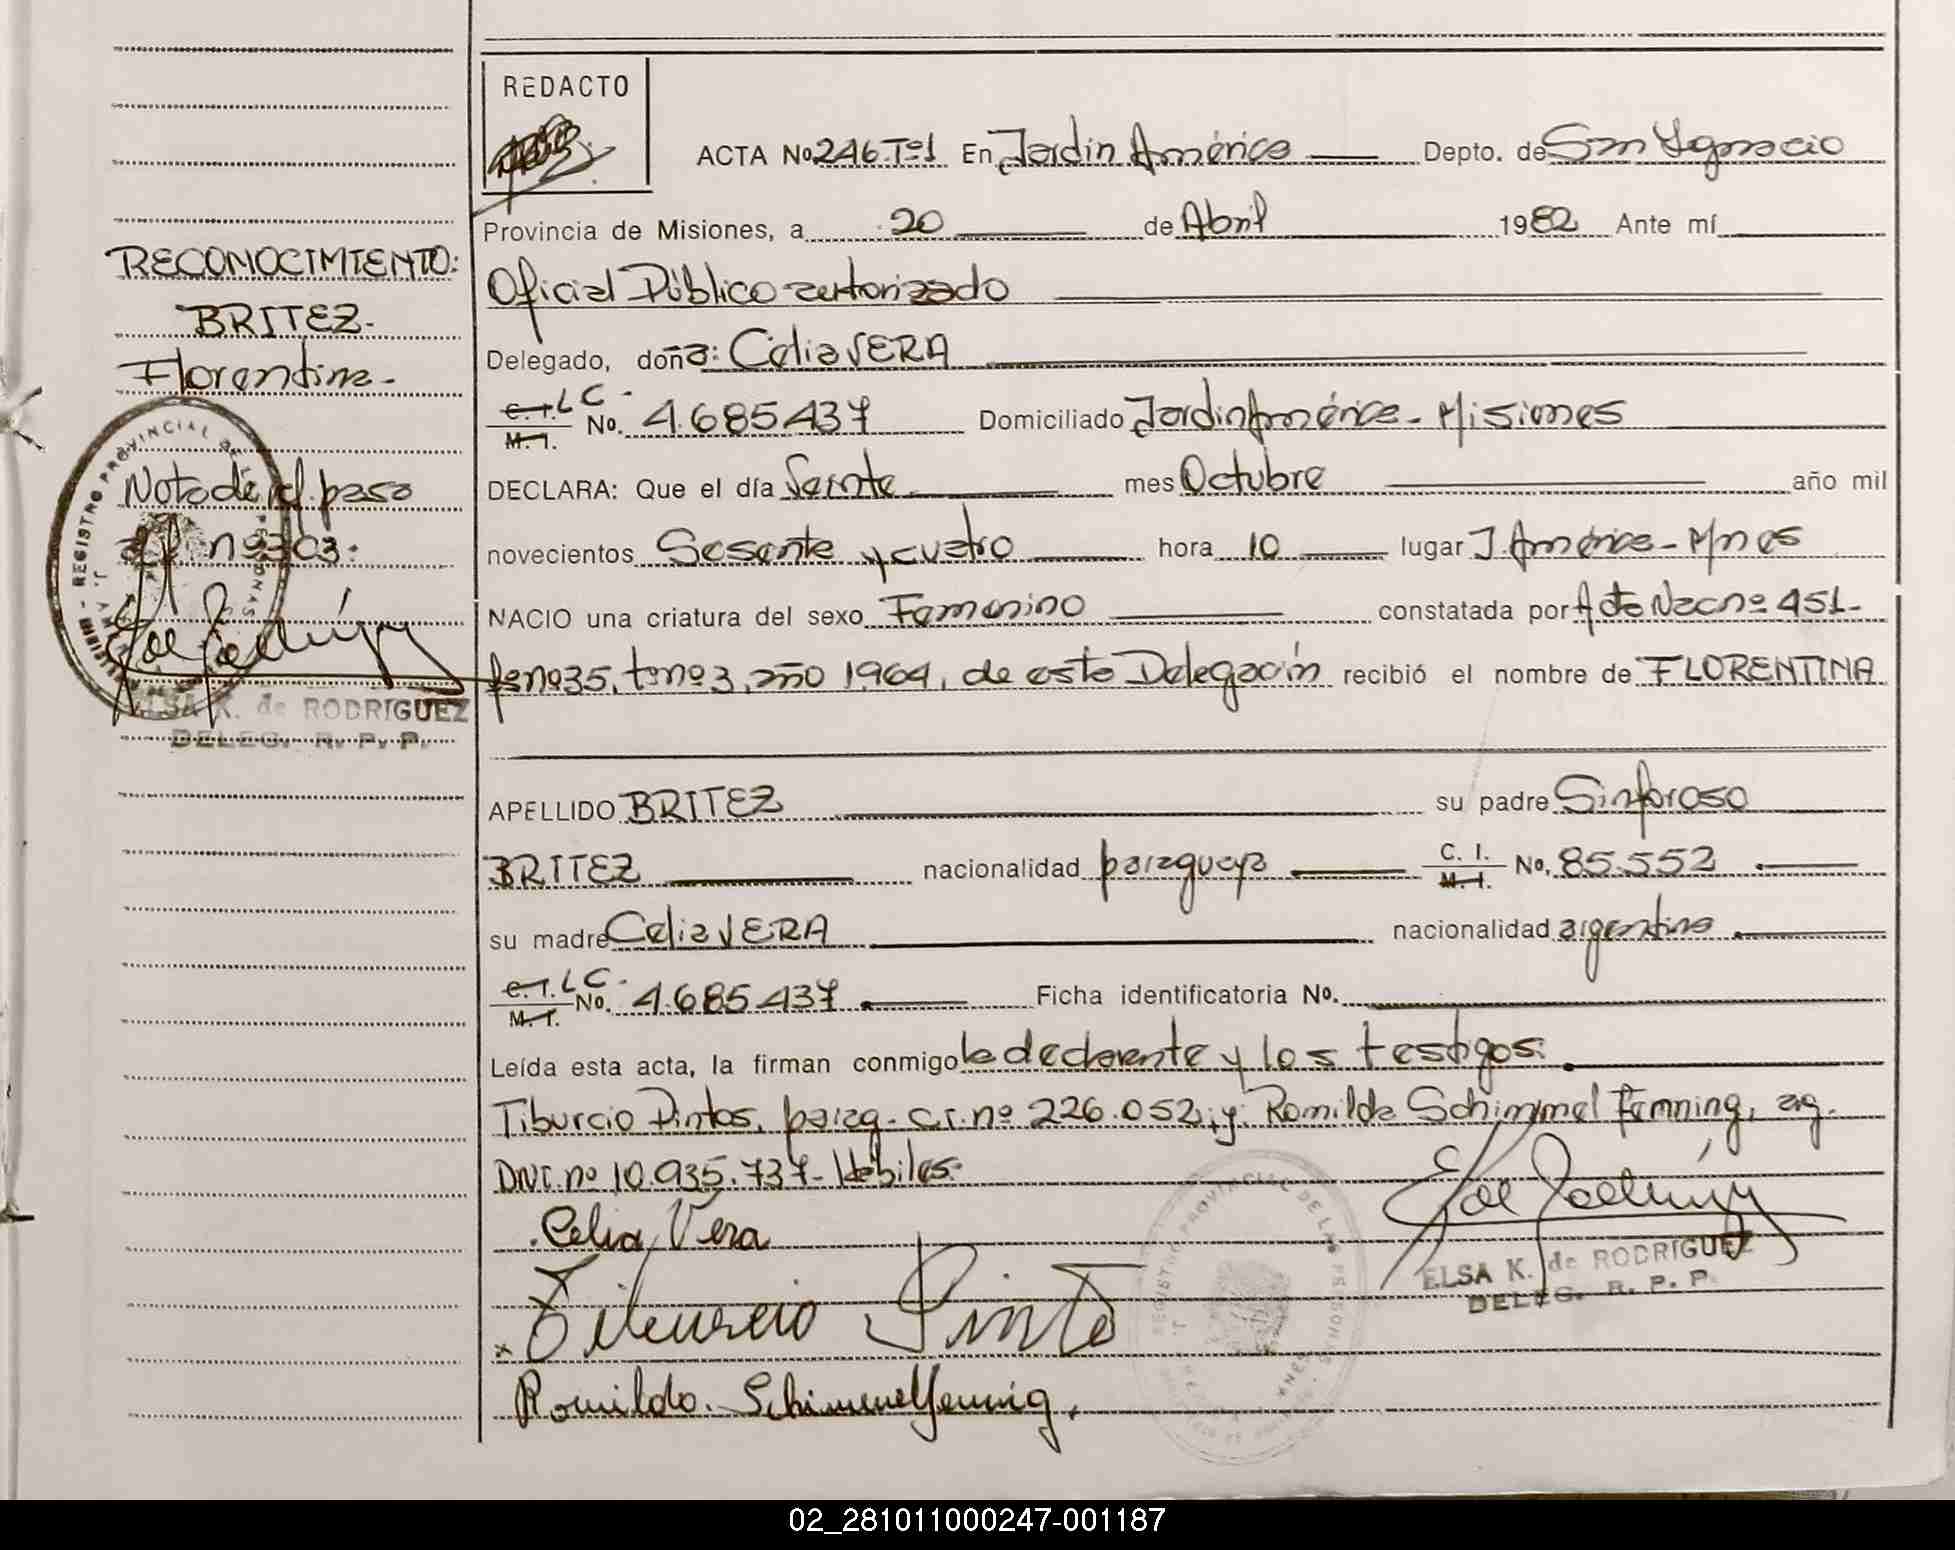 REDACTO
ACTA No 246 Tº1 En Jardin América Depto. de San Ygnacio
Provincia de Misiones, a 20 de Abril 1982 Ante mí
Oficial Público autorizado
Delegado, doña: Celia VERA
C.I. LC -
M.I. No. 4.685.437 Domiciliado Jardin América - Misiones
DECLARA: Que el día Veinte mes Octubre año mil
novecientos Sesenta y cuatro hora 10 lugar J. América - Mnes
NACIO una criatura del sexo Femenino constatada por Acta Nac nº 451-
fº nº 35, tº nº 3, año 1964, de esta Delegación recibió el nombre de FLORENTINA
APELLIDO BRITEZ su padre Sinforoso
BRITEZ nacionalidad paraguaya C. I. M.I. No. 85.552
su madre Celia VERA nacionalidad argentina
C.I. LC -
M.I. No. 4.685.437 Ficha identificatoria No.
Leída esta acta, la firman conmigo la declarante y los testigos:
Tiburcio Pintos, parag. C.I. nº 226.052, y Romilda Schimmel Fenning, arg.
DNI. nº 10.935.737 - Hábiles.
Celia Vera
Tiburcio Pinto
Romilda Schimmelfennig.
ELSA K. de RODRIGUEZ
DELEG. R. P. P.
REGISTRO PROVINCIAL DE LAS PERSONAS
RECONOCIMIENTO:
BRITEZ-
Florentina-
Nota de ref. pasa
nº 303:
REGISTRO PROVINCIAL DE LAS PERSONAS
ELSA K. de RODRIGUEZ
DELEG. R. P. P.
02_281011000247-001187